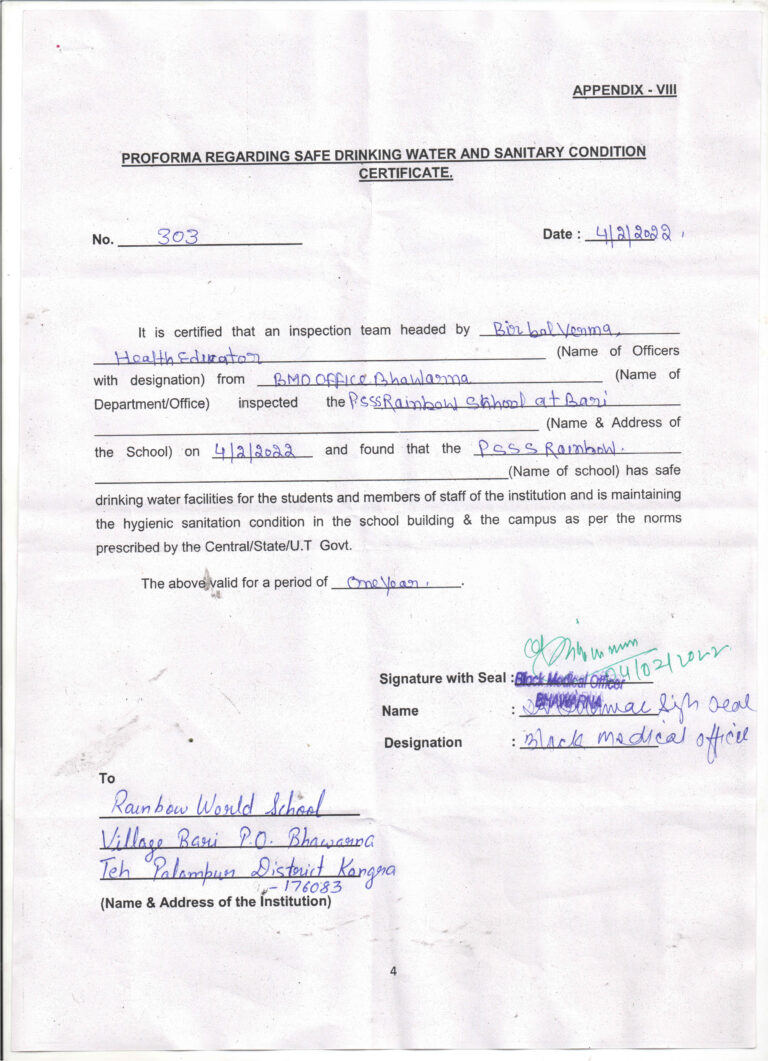 APPENDIX - VIII
PROFORMA REGARDING SAFE DRINKING WATER AND SANITARY CONDITION
CERTIFICATE.
No. 303
Date : 4/2/2022.
It is certified that an inspection team headed by Birbal Verma,
Health Educator (Name of Officers
with designation) from BMO OFFICE Bhawarna (Name of
Department/Office) inspected the PSSS Rainbow School at Bari
(Name & Address of
the School) on 4/2/2022 and found that the PSSS Rainbow.
(Name of school) has safe
drinking water facilities for the students and members of staff of the institution and is maintaining
the hygienic sanitation condition in the school building & the campus as per the norms
prescribed by the Central/State/U.T Govt.
The above valid for a period of One Year.
04/02/2022
Signature with Seal : Block Medical Officer
BHAWARNA
Name :
Designation : Block medical officer
To
Rainbow World School
Village Bari P.O. Bhawarna
Teh Palampur District Kangra
- 176083
(Name & Address of the Institution)
4